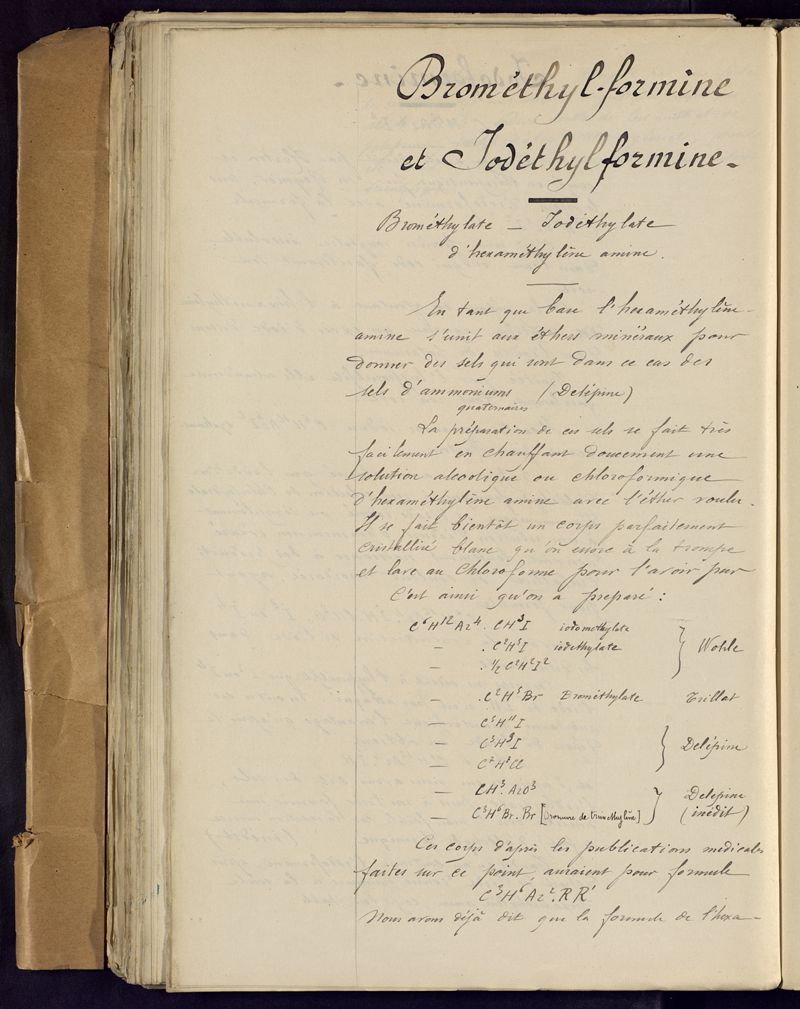 Brométhyl-formine
et Iodéthylformine -
Brométhylate — Iodéthylate
d'hexaméthylène amine.
En tant que base l'hexaméthylène-
amine s'unit aux éthers minéraux pour
donner des sels qui sont dans ce cas des
sels d'ammoniums (Delépine)
quaternaires
La préparation de ces sels se fait très
facilement en chauffant doucement une
solution alcoolique ou chloroformique
d'hexaméthylène amine avec l'éther voulu.
Il se fait bientôt un corps parfaitement
cristallisé blanc qu'on essore à la trompe
et lave au chloroforme pour l'avoir pur
C'est ainsi qu'on a préparé :
C⁶H¹²Az⁴. CH³I iodométhylate
— . C²H⁵I iodéthylate } Wohle
— . ½ C²H⁴I²
— . C²H⁵Br Brométhylate Trillat
— C⁵H¹¹I
— C³H⁹I } Delépine
— C⁷H⁷Cl
— CH³. AzO³ } Delépine
— C³H⁶Br. Br [bromure de triméthylène] (inédit)
Ces corps d'après les publications médicales
faites sur ce point, auraient pour formule
C³H⁶Az². RR'
Nous avons déjà dit que la formule de l'hexa-